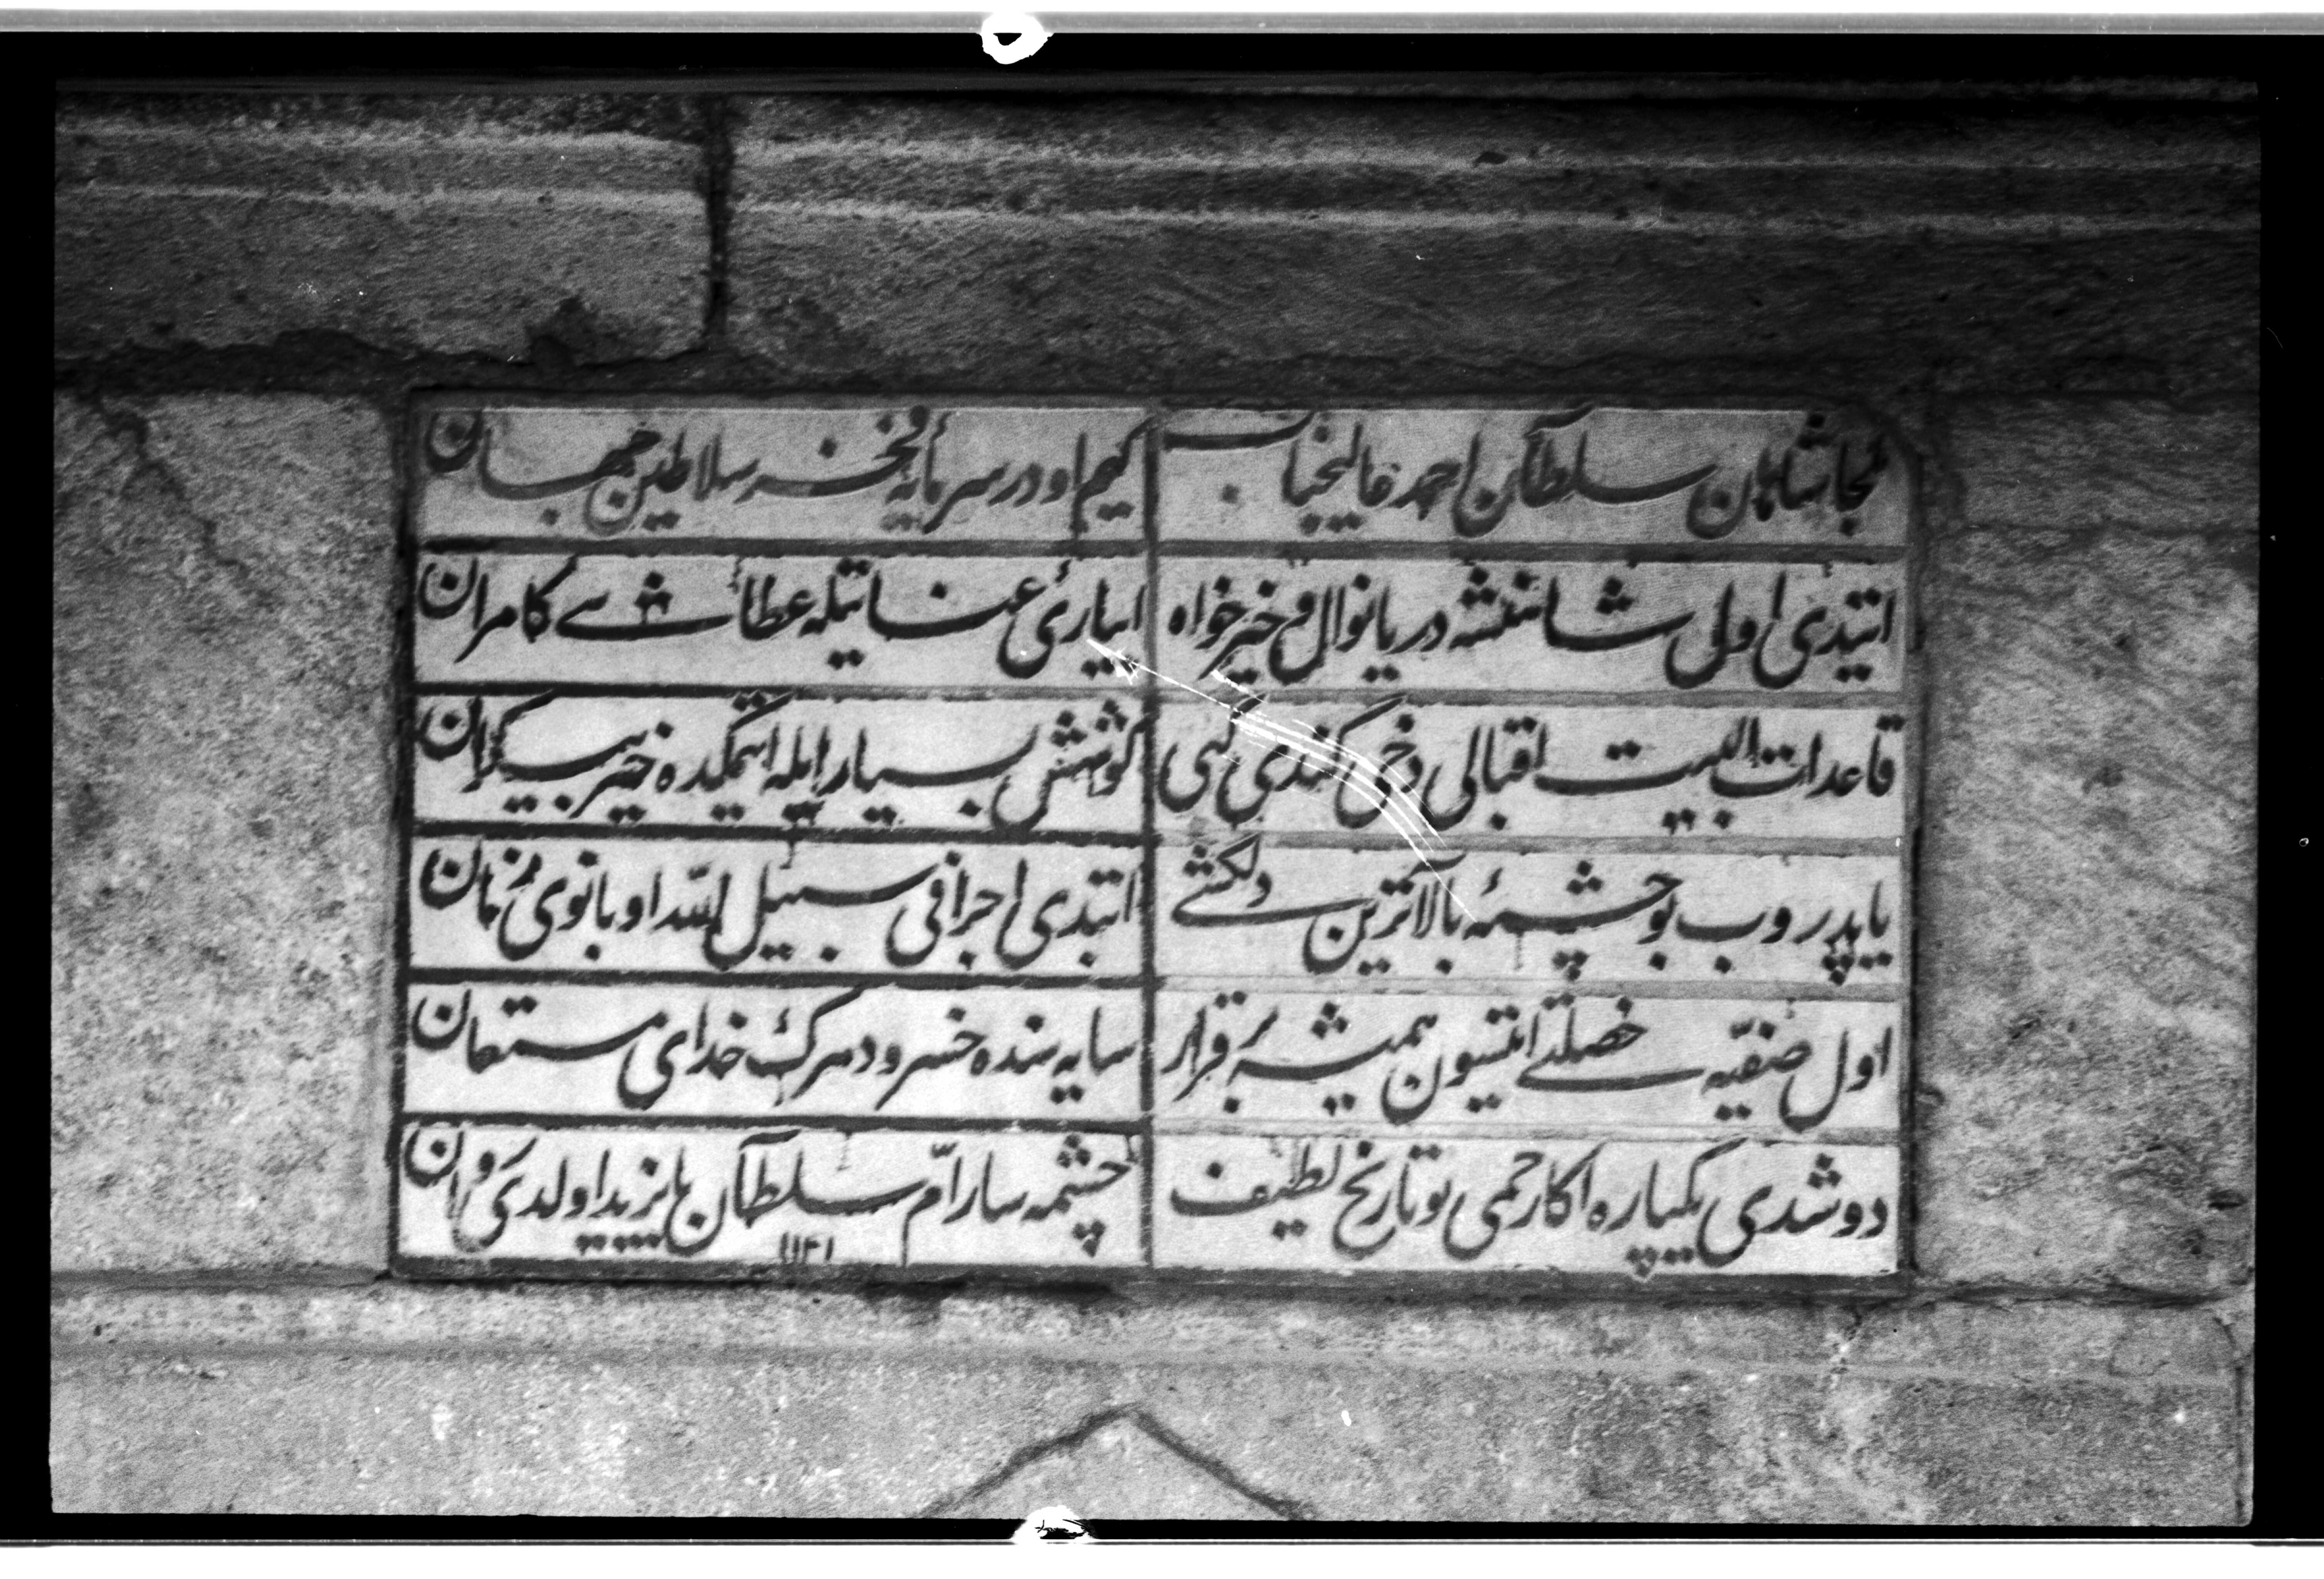 ملجأ شاهان سلطان احمد عاليجناب
كيم اودر سرمايهٔ فخر سلاطين جهان
ايتدى اول شاهنشه دريا نوال و خير خواه
ابيارئ عنايتيله عطاشى كامران
قاعدات البيت اقبالى دخى كندى كبى
كوشش بسيار ايله ايتمكده خير بيكران
ياپدروب بو چشمهٔ بالاترين دلكشى
ايتدى اجرا فى سبيل الله او بانوى زمان
اول صفيه خصلتى ايتسون هميشه برقرار
سايه سنده خسرو دهرك خداى مستعان
دوشدى يكپاره اكا رحمى بو تاريخ لطيف
چشمه سار ام سلطان بايزيد اولدى روان
١١٤١